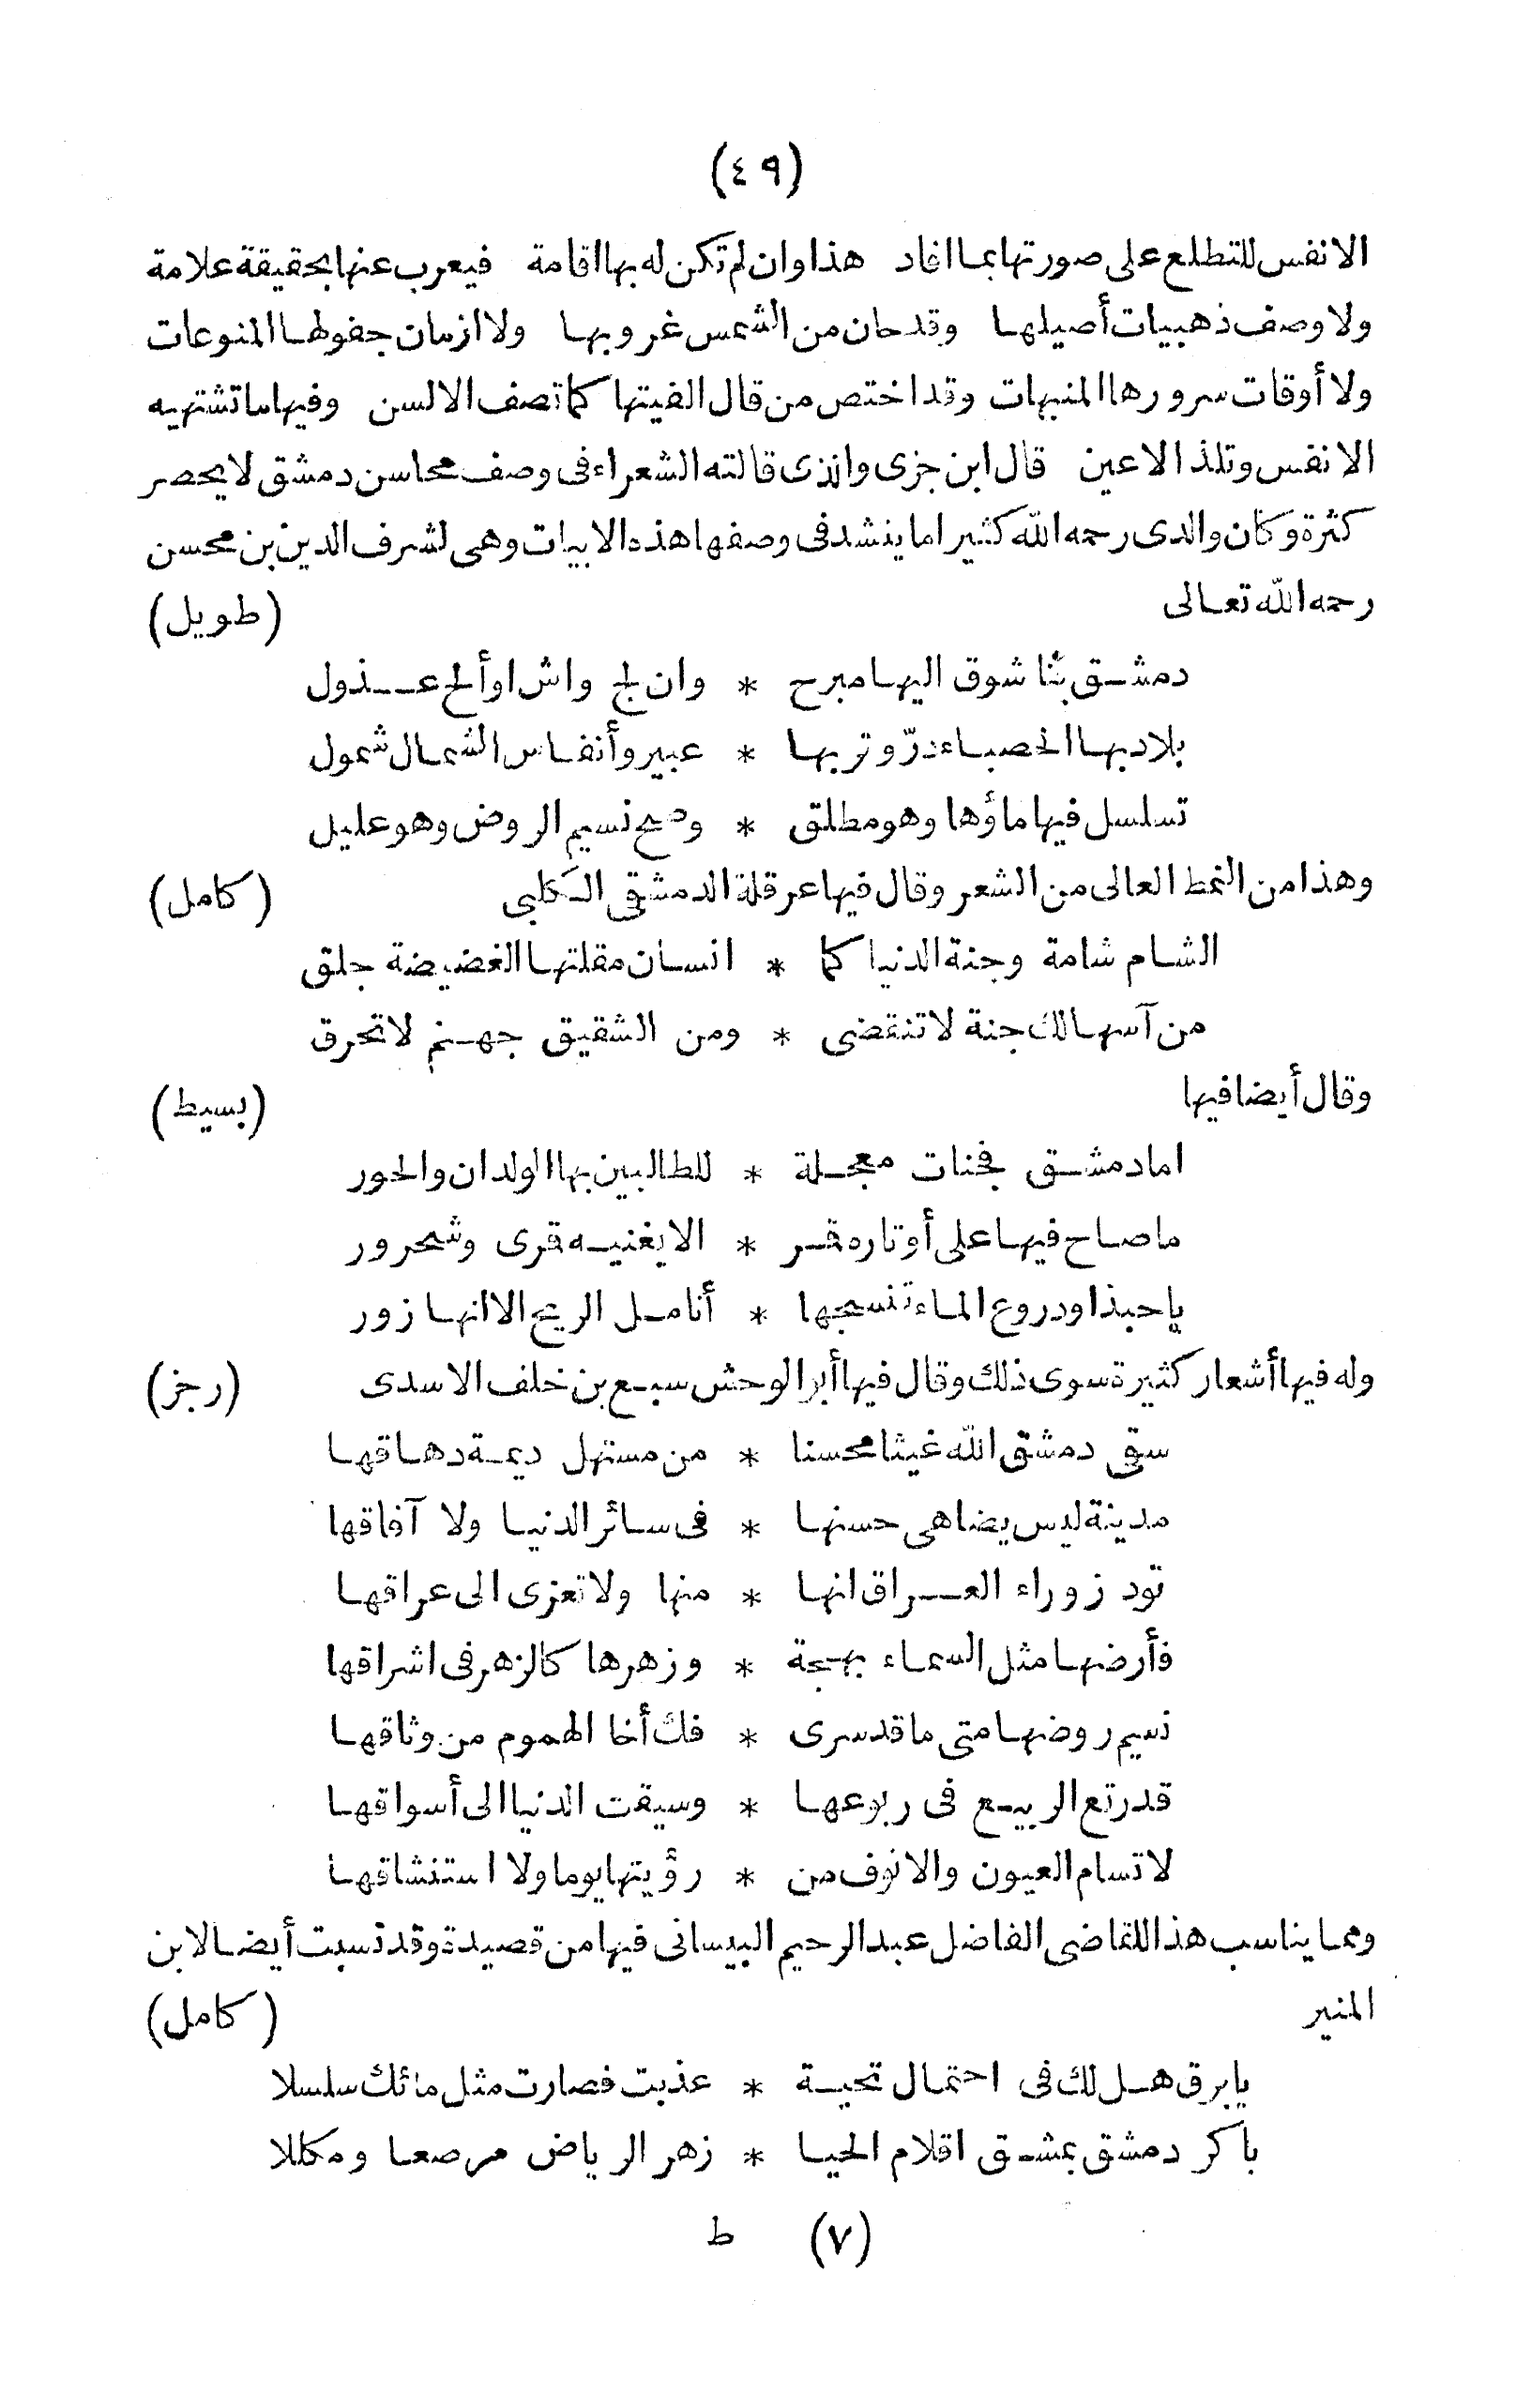 (٤٩)
الانفس للتطلع على صورتها بما افاد هذا وان لم تكن له بها اقامة فيعرب عنها بحقيقة علامة
ولا وصف ذهبيات أصيلها وقد حان من الشمس غروبها ولا ازمان جفولها المنوعات
ولا أوقات سرورها المنبهات وقد اختص من قال الفيتها كما تصف الالسن وفيها ما تشتهيه
الانفس وتلذ الاعين قال ابن جزى والذى قالته الشعراء فى وصف محاسن دمشق لا يحصر
كثرة وكان والدى رحمه الله كثيرا ما ينشد فى وصفها هذه الابيات وهى لشرف الدين بن محسن
رحمه الله تعالى (طويل)
دمشق بنا شوق اليها مبرح * وان لج واش او ألح عذول
بلاد بها الحصباء در وتربها * عبير وأنفاس الشمال شمول
تسلسل فيها ماؤها وهو مطلق * وصح نسيم الروض وهو عليل
وهذا من النمط العالى من الشعر وقال فيها عرقلة الدمشقى الكلبى (كامل)
الشام شامة وجنة الدنيا كما * انسان مقلتها الغضيضة جلق
من آسها لك جنة لا تنقضى * ومن الشقيق جهنم لا تحرق
وقال أيضا فيها (بسيط)
اما دمشق فجنات معجلة * للطالبين بها الولدان والحور
ما صاح فيها على أوتاره قمر * الا يغنيه قمرى وشحرور
يا حبذا ودروع الماء تنسجها * أنامل الريح الا انها زور
وله فيها أشعار كثيرة سوى ذلك وقال فيها أبو الوحش سبع بن خلف الاسدى (رجز)
سقى دمشق الله غيثا محسنا * من مستهل ديمة دهاقها
مدينة ليس يضاهى حسنها * فى سائر الدنيا ولا آفاقها
تود زوراء العراق انها * منها ولا تعزى الى عراقها
فأرضها مثل السماء بهجة * وزهرها كالزهر فى اشراقها
نسيم روضها متى ما قد سرى * فك أخا الهموم من وثاقها
قد رتع الربيع فى ربوعها * وسيقت الدنيا الى أسواقها
لا تسام العيون والانوف من * رؤيتها يوما ولا استنشاقها
ومما يناسب هذا للقاضى الفاضل عبد الرحيم البيسانى فيها من قصيدة وقد نسبت أيضا لابن
المنير (كامل)
يا برق هل لك فى احتمال تحية * عذبت فصارت مثل مائك سلسلا
باكر دمشق بمشق اقلام الحيا * زهر الرياض مرصعا ومكللا
(٧) ط